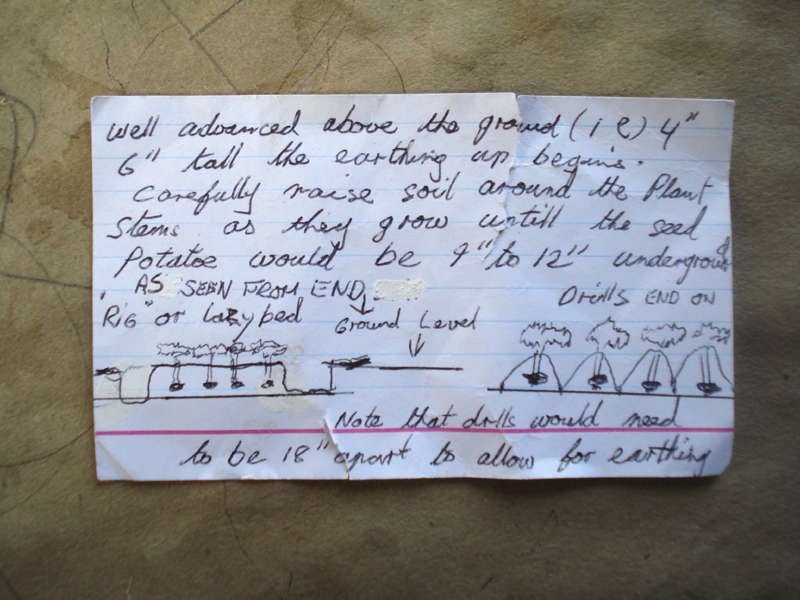 well advanced above the ground (i e) 4"
6" tall the earthing up begins.
carefully raise soil around the Plant
stems as they grow untill the seed
Potatoe would be 9" to 12" underground
AS SEEN FROM END
Drills END ON
RIG" or lazy bed
Ground Level
Note that drills would need
to be 18" apart to allow for earthing